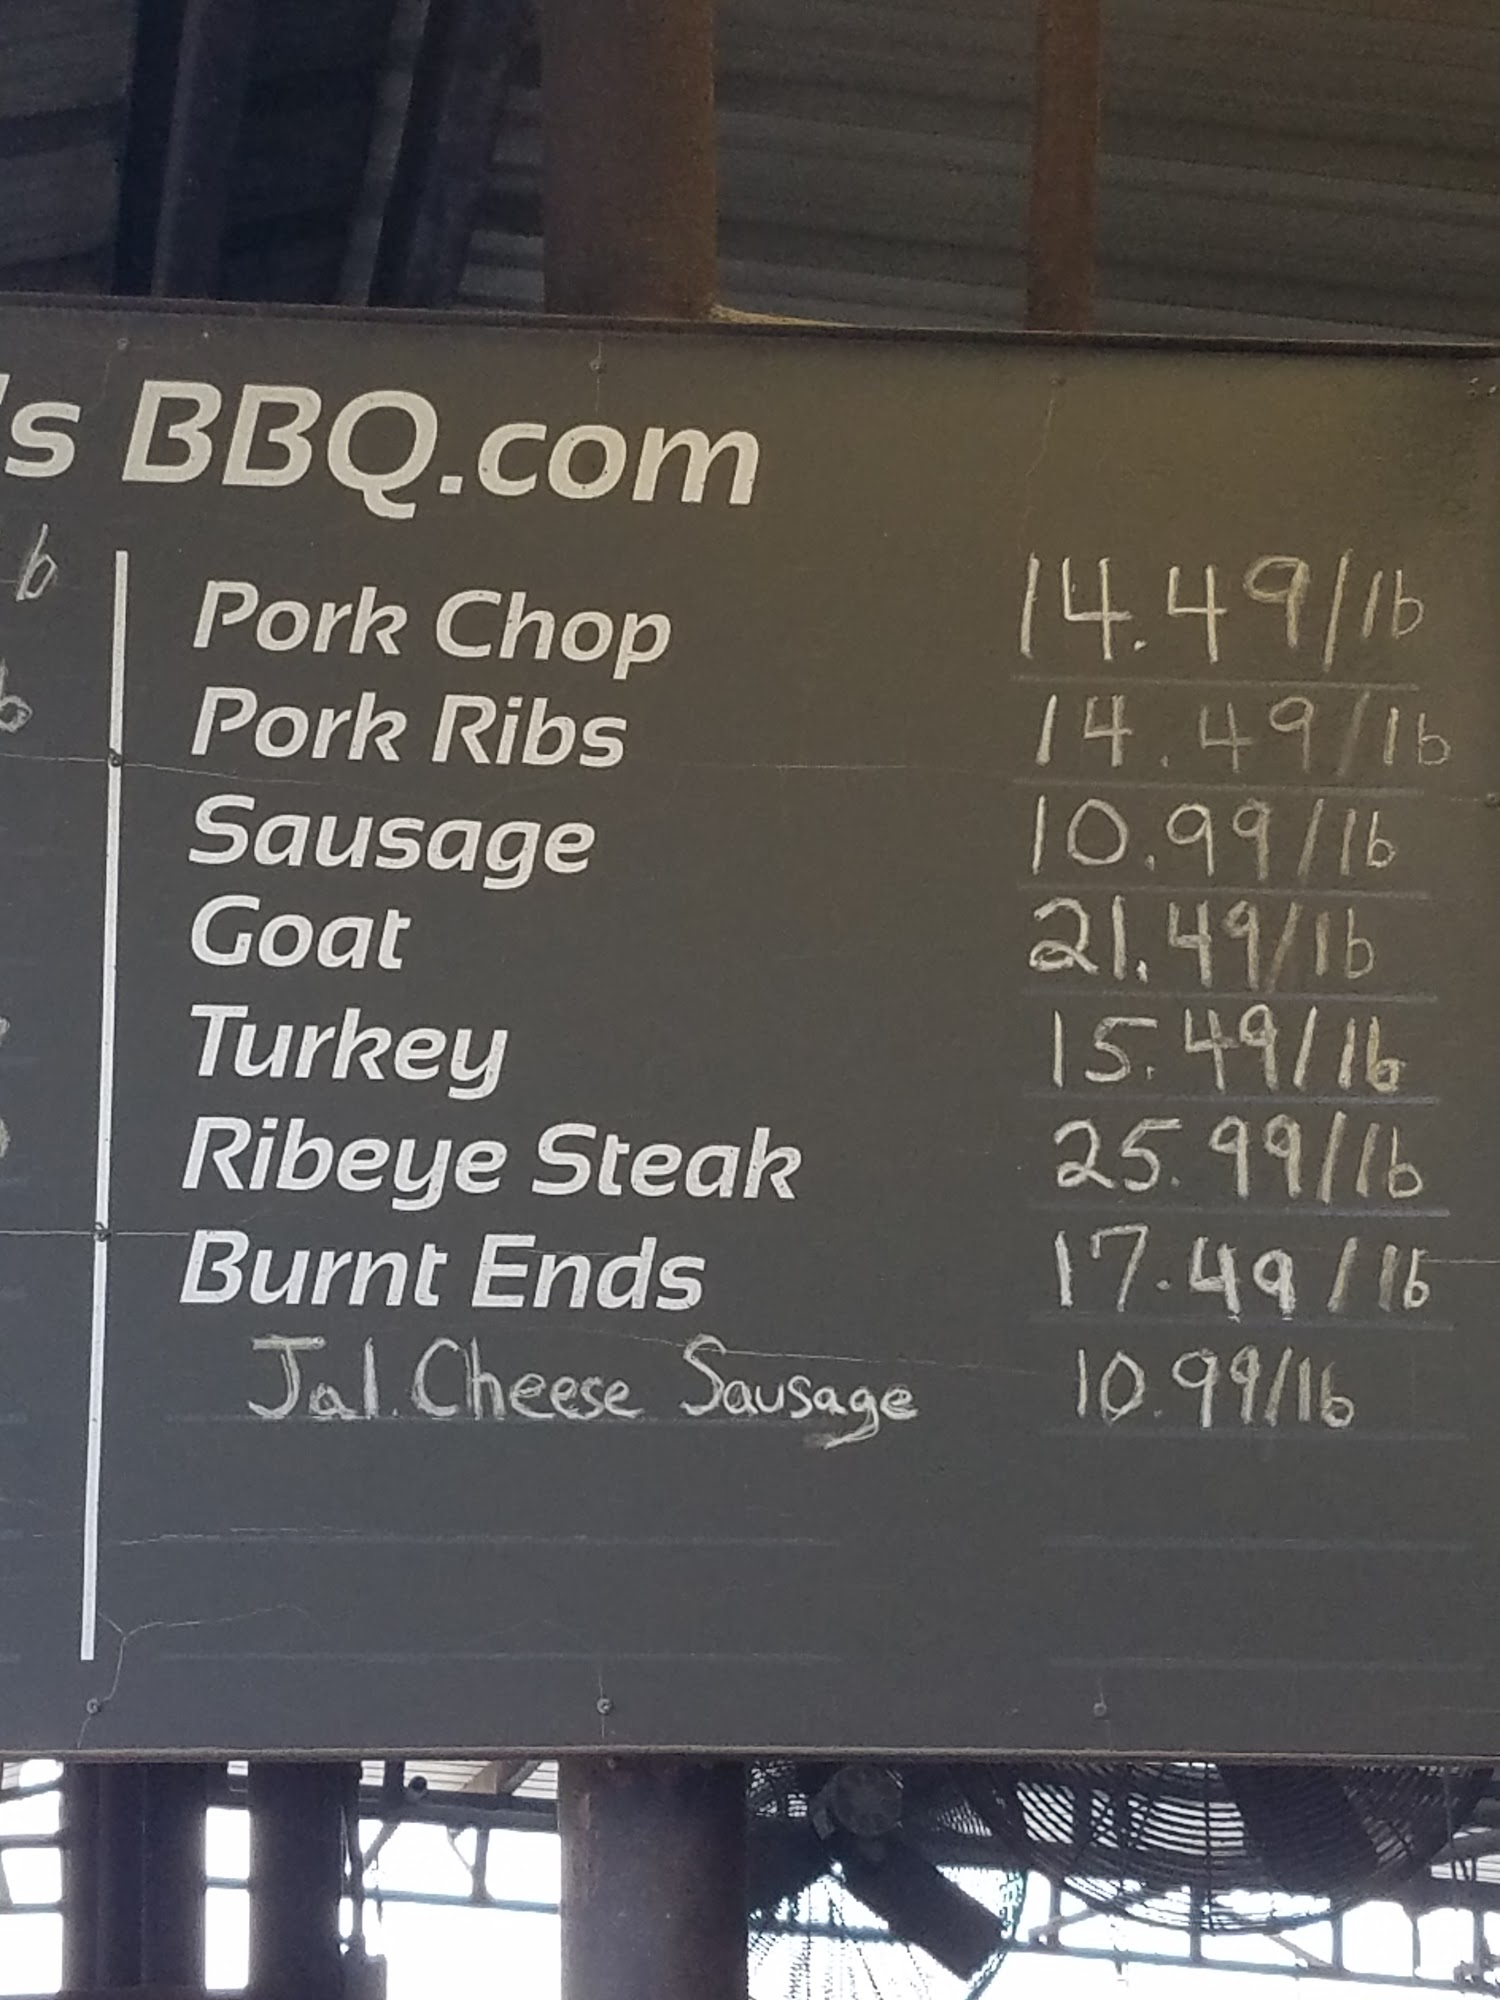 's BBQ.com
Pork Chop 14.49/lb
Pork Ribs 14.49/lb
Sausage 10.99/lb
Goat 21.49/lb
Turkey 15.49/lb
Ribeye Steak 25.99/lb
Burnt Ends 17.49/lb
Jal. Cheese Sausage 10.99/lb